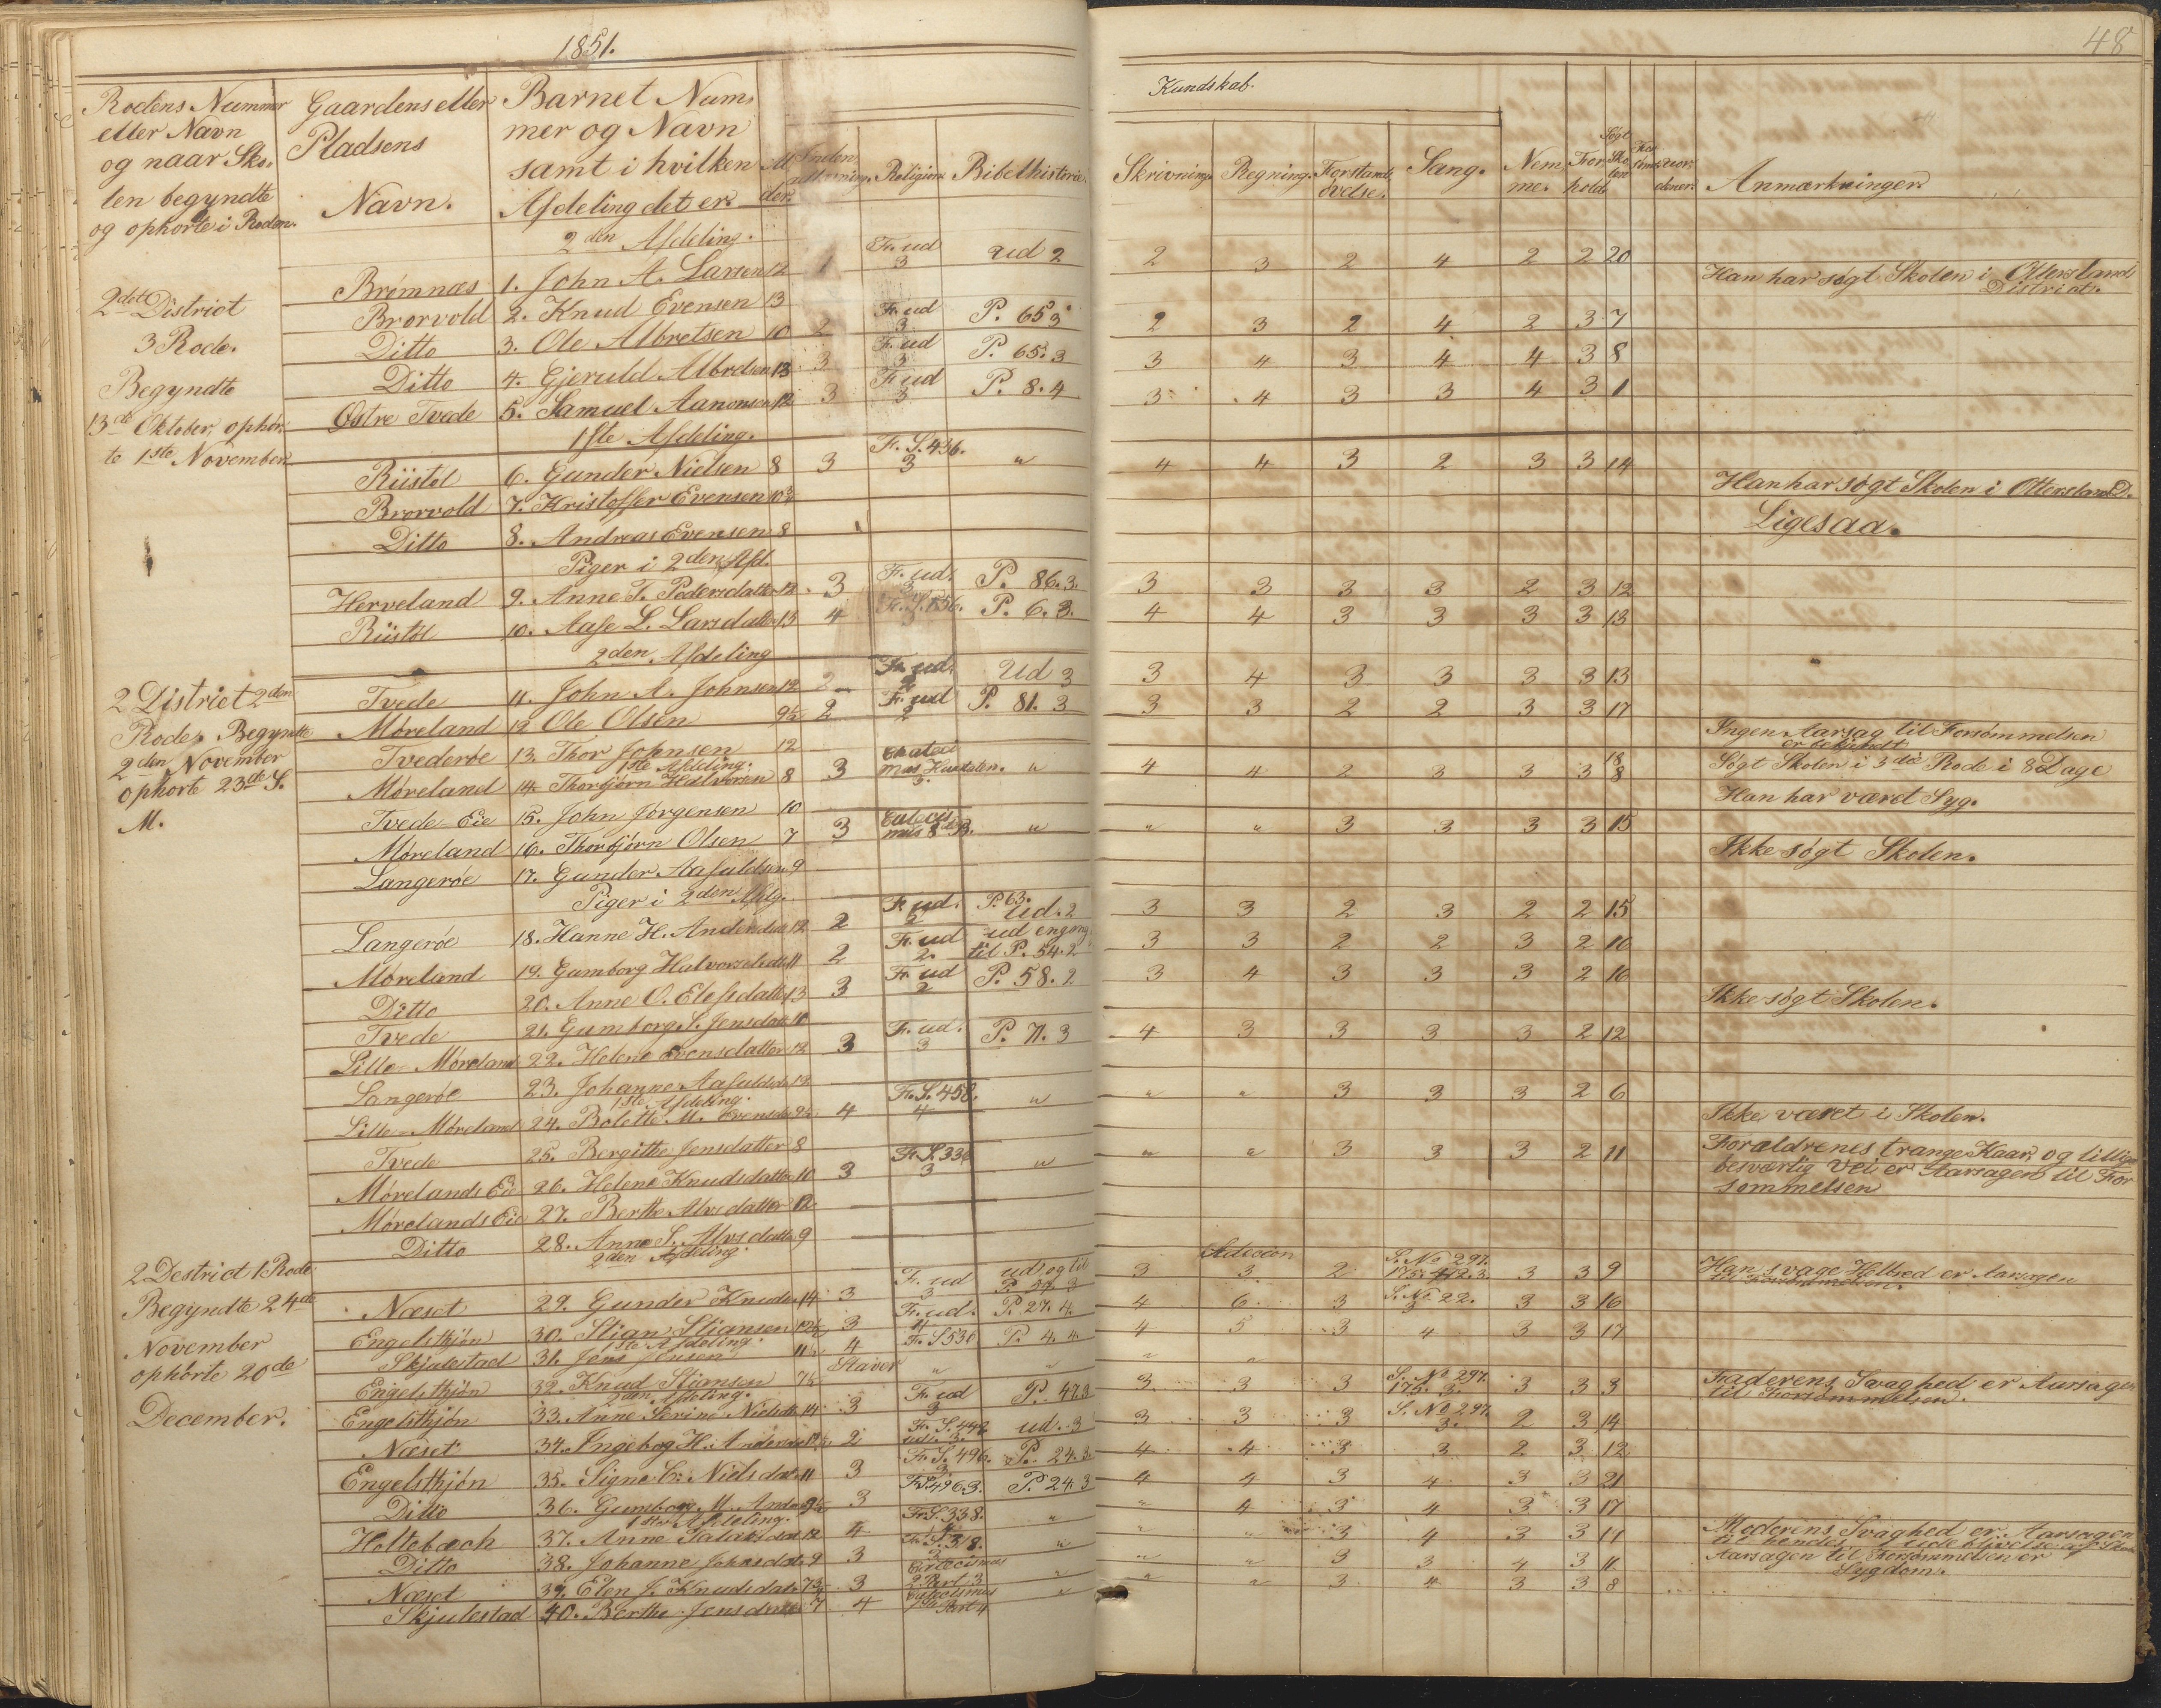 1851.
48
Rodens Nummer
eller Navn
og naar Sko-
len begyndte
og ophørte i Roden.
Gaardens eller
Pladsens
Navn.
Barnet Num-
mer og Navn
samt i hvilken
Afdeling det er.
Al-
der.
Religion
Bibelhistorie.
Kundskab.
Skrivning.
Regning.
Forstands
øvelse.
Sang.
Nem
me.
For
hold.
Søgt
Sko
len
Anmærkninger.
2den Afdeling.
Brømnæs 1. John A. Larsen 12 1 Fr. ud 3 ud 2 2 3 2 4 2 2 20
2det District
Brørvold 2. Knud Evensen 13 Han har søgt Skolen i Ottersland
District.
3 Rode.
Ditto 3. Ole Albretsen 10 2 Fr. ud 3 P. 65 3 2 3 2 4 2 3 7
Begyndte
Ditto 4. Gjeruld Albretsen 13 3 Fr. ud 3 P. 65. 3 3 4 3 4 4 3 8
13de Oktober, ophør-
te 1ste November
Østre Tvede 5. Samuel Aanonsen 12 3 Fr. ud 3 P. 8. 4 3 4 3 3 4 3 1
1ste Afdeling.
Riistøl 6. Gunder Nielsen 8 3 Fr. S. 436. 3 " 4 4 3 2 3 3 14
Brørvold 7. Kristoffer Evensen 10½ Han har søgt Skolen i Ottersland D.
Ditto 8. Andreas Evensen 8 Ligesaa.
Piger i 2den Afd.
Herveland 9. Anne T. Pedersdatter 12 3 Fr. ud. 3 P. 86. 3. 3 3 3 3 2 3 12
Riistøl 10. Aase L. Larsdatter 13 4 P. 6. 3. 4 4 3 3 3 3 13
2den Afdeling
2 District 2den
Tvede 11. John A. Johnsen 12 2 Fr. ud. Ud 3 3 4 3 3 3 3 13
Rode. Begyndte
Møreland 12 Ole Olsen 9½ 2 Fr. ud 2 P. 81. 3 3 3 2 2 3 3 17
2den November
Tvederøe 13. Thor Johnsen 12 Ingen Aarsag til Forsømmelsen
er bekjendt
1ste Afdeling.
ophørte 23de S.
M.
Møreland 14. Thorbjørn Halvorsen 8 3 3. " 4 4 2 3 3 3 18 8 Søgt Skolen i 3die Rode i 8 Dage
Tvede-Eie 15. John Jørgensen 10 Han har været Syg.
Møreland 16. Thorbjørn Olsen 7 3 " " " 3 3 3 3 15
Langerøe 17. Gunder Aasuldsen 9 Ikke søgt Skolen.
Piger i 2den Afdg.
Langerøe 18. Hanne H. Andersdat 12 2 Fr. ud. 2 P. 63. ud. 2 3 3 2 3 2 2 15
Møreland 19. Gumborg Halvorsdatt 11 2 Fr. ud 2. ud engang til P. 54. 2 3 3 2 2 3 2 10
Ditto 20. Anne O. Elefsdatter 13 3 Fr. ud 2 P. 58. 2 3 4 3 3 3 2 16
Tvede 21. Gumborg S. Jensdat 10 Ikke søgt Skolen.
Lille-Møreland 22. Helene Evensdatter 12 3 Fr. ud. 3 P. 71. 3 4 3 3 3 3 2 12
Langerøe 23. Johanne Aasuldsdt 12
1ste Afdeling.
Lille-Møreland 24. Bolette M. Evensdt 9½ 4 Fr. S. 458. 4 " " " 3 3 3 2 6
Tvede 25. Bergitte Jensdatter 8 Ikke været i Skolen.
Mørelands Eie 26. Helene Knudsdatter 10 3 Fr. S. 336 3 " " " 3 3 3 2 11 Forældrenes trange Kaar, og tillige
besværlig Vei er Aarsagen til For
sømmelsen
Mørelands Eie 27. Berthe Alvsdatter 12
Ditto 28. Anne S. Alvsdatter 9
2den Afdeling.
2 Destrict 1 Rode
Begyndte 24de
November
ophørte 20de
December.
Næset 29. Gunder Knudsen 14 3 Fr. ud 3 ud og til 3 Adicion 3. 2 S. No 297. 3 3 9 Hans svage Helbred er Aarsagen
Engelsthjøn 30. Stian Stiansen 12½ 3 Fr. ud. 4 P. 27. 4. 4 6. 3 S. No 22. 3 3 3 16
1ste Afdeling.
Skjulestad 31. Jens Jensen 11½ 4 Fr. S 530 P. 4. 4. 4 5 3 4 3 3 17
Engelsthjøn 32. Knud Stiansen 7½ Staver " " " "
2den Afdeling.
Engelsthjøn 33. Anne Serine Nielsdt 14 3 Fr. ud 3 P. 47. 3 3 3 3 S. No 297. 175. 3. 3 3 3 Faderens Svaghed er Aarsagen
til Forsømmelsen.
Næset 34. Ingeborg H. Andersdt 12½ 2 Fr. S. 442 ud. 3. ud. 3 3 3 3 S. No 297. 3. 2 3 14
Engelsthjøn 35. Signe C. Nielsdat. 11 3 Fr. S. 496. 3 P. 24. 3. 4 4 3 3 2 3 12
Ditto 36. Gumborg M. 9½ 3 Fr. S. 496 3. P. 24. 3 4 4 3 4 3 3 21
1ste Afdeling.
Holtebæch 37. Anne 12 4 Fr. S. 338. 4 " " 4 3 4 3 3 17
Ditto 38. Johanne Johnsdat. 9 3 Fr. S. 318. 3 " " " 3 4 3 3 11 Moderens Svaghed er Aarsagen
til hendes
Næset 39. Elen J. Knudsdat. 7¾ 3 2. Part. 3 " " " 3 3 4 3 11. Aarsagen til Forsømmelsen er
Sygdom.
Skjulestad 40. Berthe Jensdatter 7 4 1ste Part 4 " " " 3 4 3 3 8